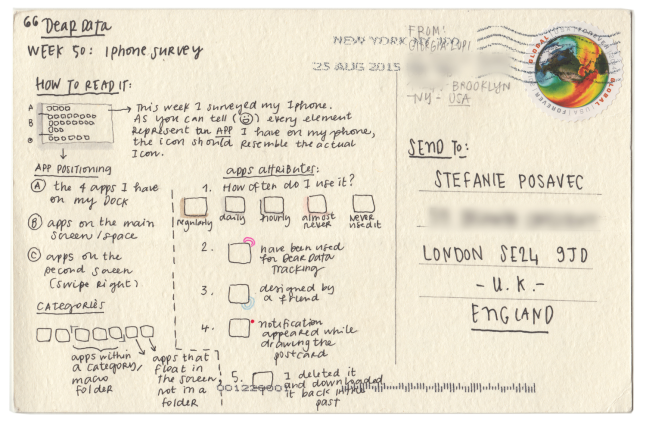 “ Dear Data
WEEK 50: Iphone survey
HOW TO READ IT:
A
B
This week I surveyed my Iphone.
As you can tell (☹) every element
represent an APP I have on my phone,
the icon should resemble the actual
Icon.
APP POSITIONING
A the 4 apps I have
on my DOCK
B apps on the main
screen/space
C apps on the
second screen
(swipe right)
CATEGORIES
apps within
a category/
macro
folder
apps that
float in
the screen
not in a
folder
apps attributes:
1. How often do I use it?
regularly
daily
hourly
almost
never
never
used it
2. have been used
for Dear Data
Tracking
3. designed by
a friend
4. notification
appeared while
drawing the
postcard
5. I deleted it
and downloaded
it back in the
past
FROM:
GIORGIA LUPI
NEW YORK
25 AUG 2015
BROOKLYN
-NY- USA
GLOBAL
USA
FOREVER
SEND TO:
STEFANIE POSAVEC
LONDON SE24 9JD
- U.K. -
ENGLAND